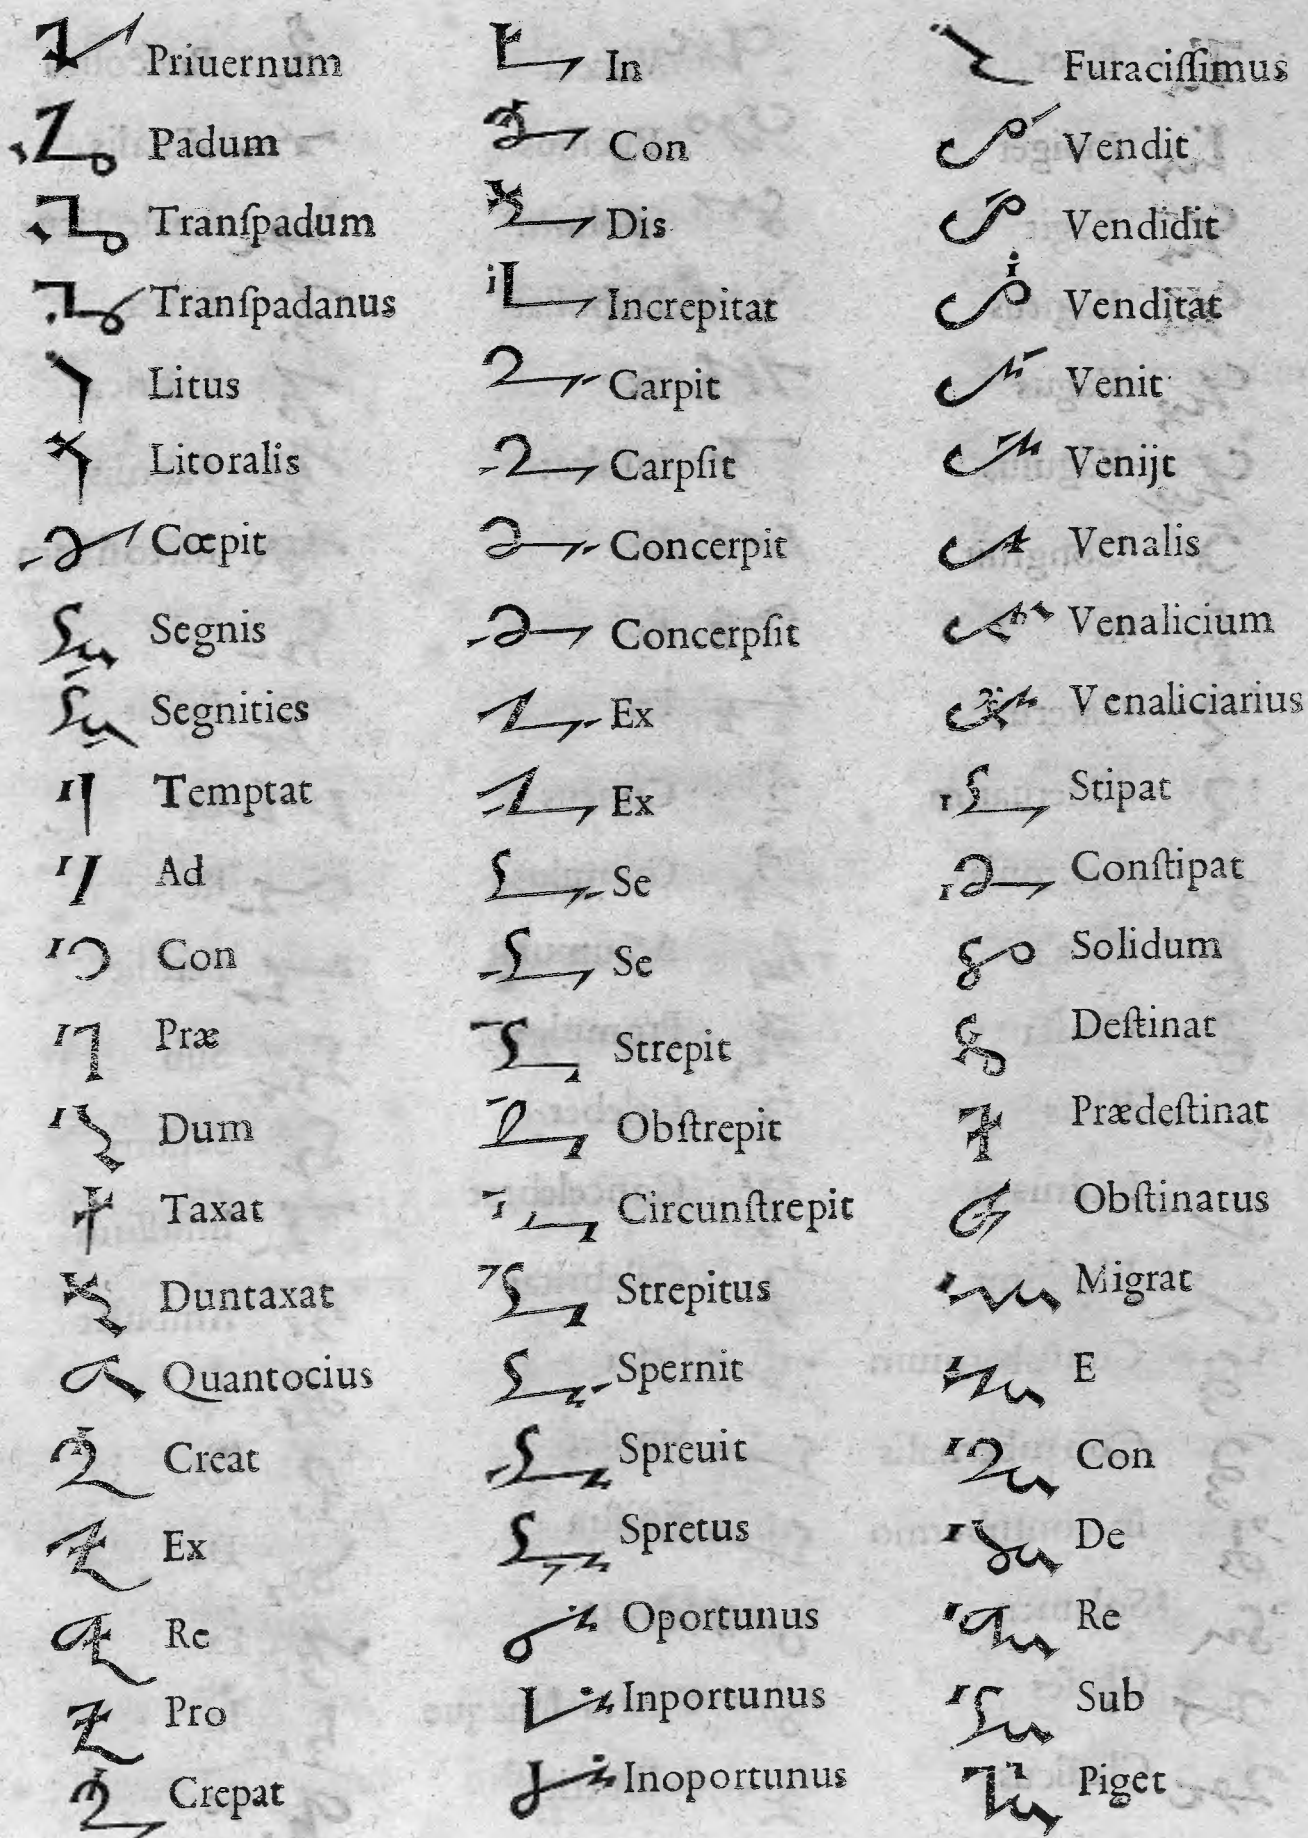 Priuernum
Padum
Tranſpadum
Tranſpadanus
Litus
Litoralis
Cœpit
Segnis
Segnities
Temptat
Ad
Con
Præ
Dum
Taxat
Duntaxat
Quantocius
Creat
Ex
Re
Pro
Crepat
In
Con
Dis
Increpitat
Carpit
Carpſit
Concerpit
Concerpſit
Ex
Ex
Se
Se
Strepit
Obſtrepit
Circunſtrepit
Strepitus
Spernit
Spreuit
Spretus
Oportunus
Inportunus
Inoportunus
Furaciſſimus
Vendit
Vendidit
Venditat
Venit
Venijt
Venalis
Venalicium
Venaliciarius
Stipat
Conſtipat
Solidum
Deſtinat
Prædeſtinat
Obſtinatus
Migrat
E
Con
De
Re
Sub
Piget